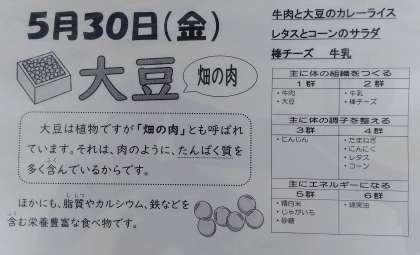 5月30日(金)
大豆
畑の肉
大豆は植物ですが「畑の肉」とも呼ばれ
ています。それは、肉のように、たんぱく質を
多く含んでいるからです。
ほかにも、脂質やカルシウム、鉄などを
含む栄養豊富な食べ物です。
牛肉と大豆のカレーライス
レタスとコーンのサラダ
棒チーズ 牛乳
主に体の組織をつくる
1群 2群
・牛肉 ・牛乳
・大豆 ・棒チーズ
主に体の調子を整える
3群 4群
・にんじん ・たまねぎ
・にんにく
・レタス
・コーン
主にエネルギーになる
5群 6群
・精白米 ・綿実油
・じゃがいも
・砂糖